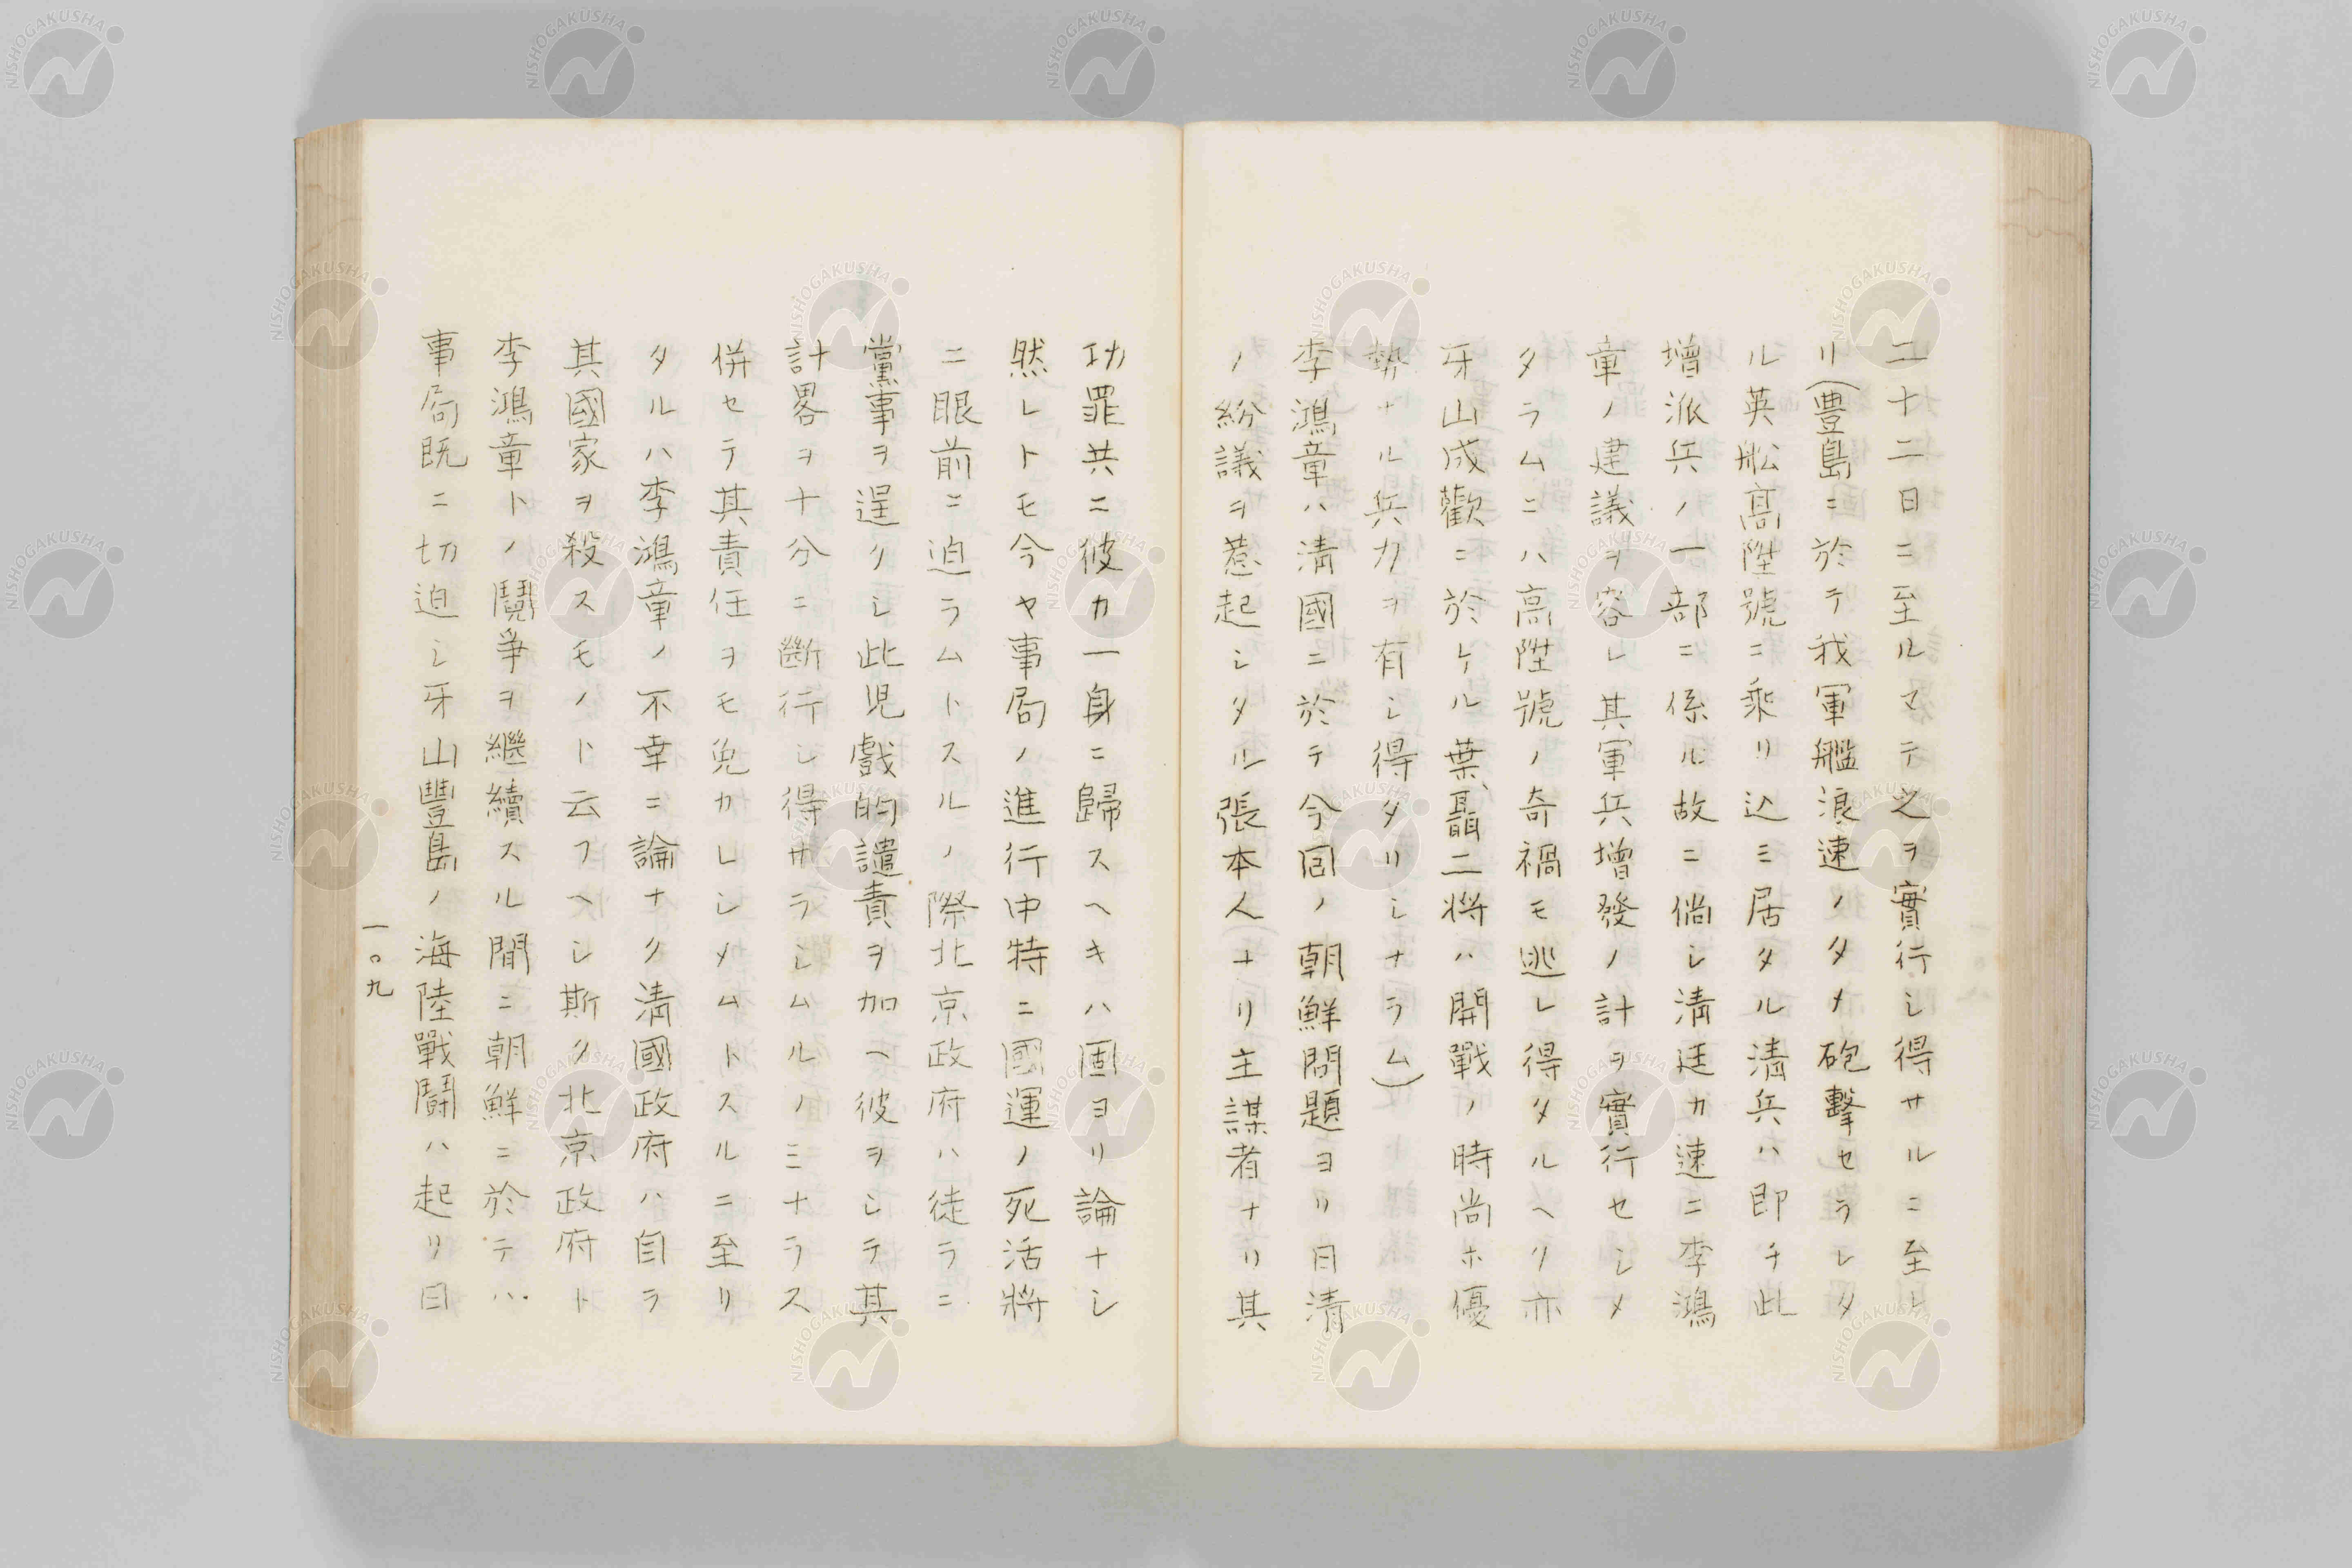 二十二日ニ至ルマテ之ヲ實行シ得サルニ至レ
リ(豊島ニ於テ我軍艦浪速ノタメ砲擊セラレタ
ル英舩髙陞號ニ乘リ込ミ居タル淸兵ハ即チ此
增派兵ノ一部ニ係ル故ニ倘シ淸廷カ速ニ李鴻
章ノ建議ヲ容レ其軍兵增發ノ計ヲ實行セシメ
タラムニハ高陞號ノ奇禍モ逃レ得タルヘク亦
牙山成歡ニ於ケル葉、聶二將ハ開戰ノ時尚ホ優
勢ナル兵力ヲ有シ得タリシナラム)
李鴻章ハ淸國ニ於テ今囘ノ朝鮮問題ヨリ日淸
ノ紛議ヲ惹起シタル張本人ナリ主謀者ナリ其
功罪共ニ彼カ一身ニ歸スヘキハ固ヨリ論ナシ
然レトモ今ヤ事局ノ進行中特ニ國運ノ死活將
ニ眼前ニ迫ラムトスルノ際北京政府ハ徒ラニ
黨事ヲ逞クシ此児戲的譴責ヲ加ヘ彼ヲシテ其
計畧ヲ十分ニ斷行シ得サラシムルノミナラス
併セテ其責任ヲモ免カレシメムトスルニ至リ
タルハ李鴻章ノ不幸ニ論ナク淸國政府ハ自ラ
其國家ヲ殺スモノト云フヘシ斯ク北京政府ト
李鴻章トノ鬪爭ヲ繼續スル間ニ朝鮮ニ於テハ
事局既ニ切迫シ牙山豐島ノ海陸戰鬪ハ起リ日
一〇九
NISHOGAKUSHA